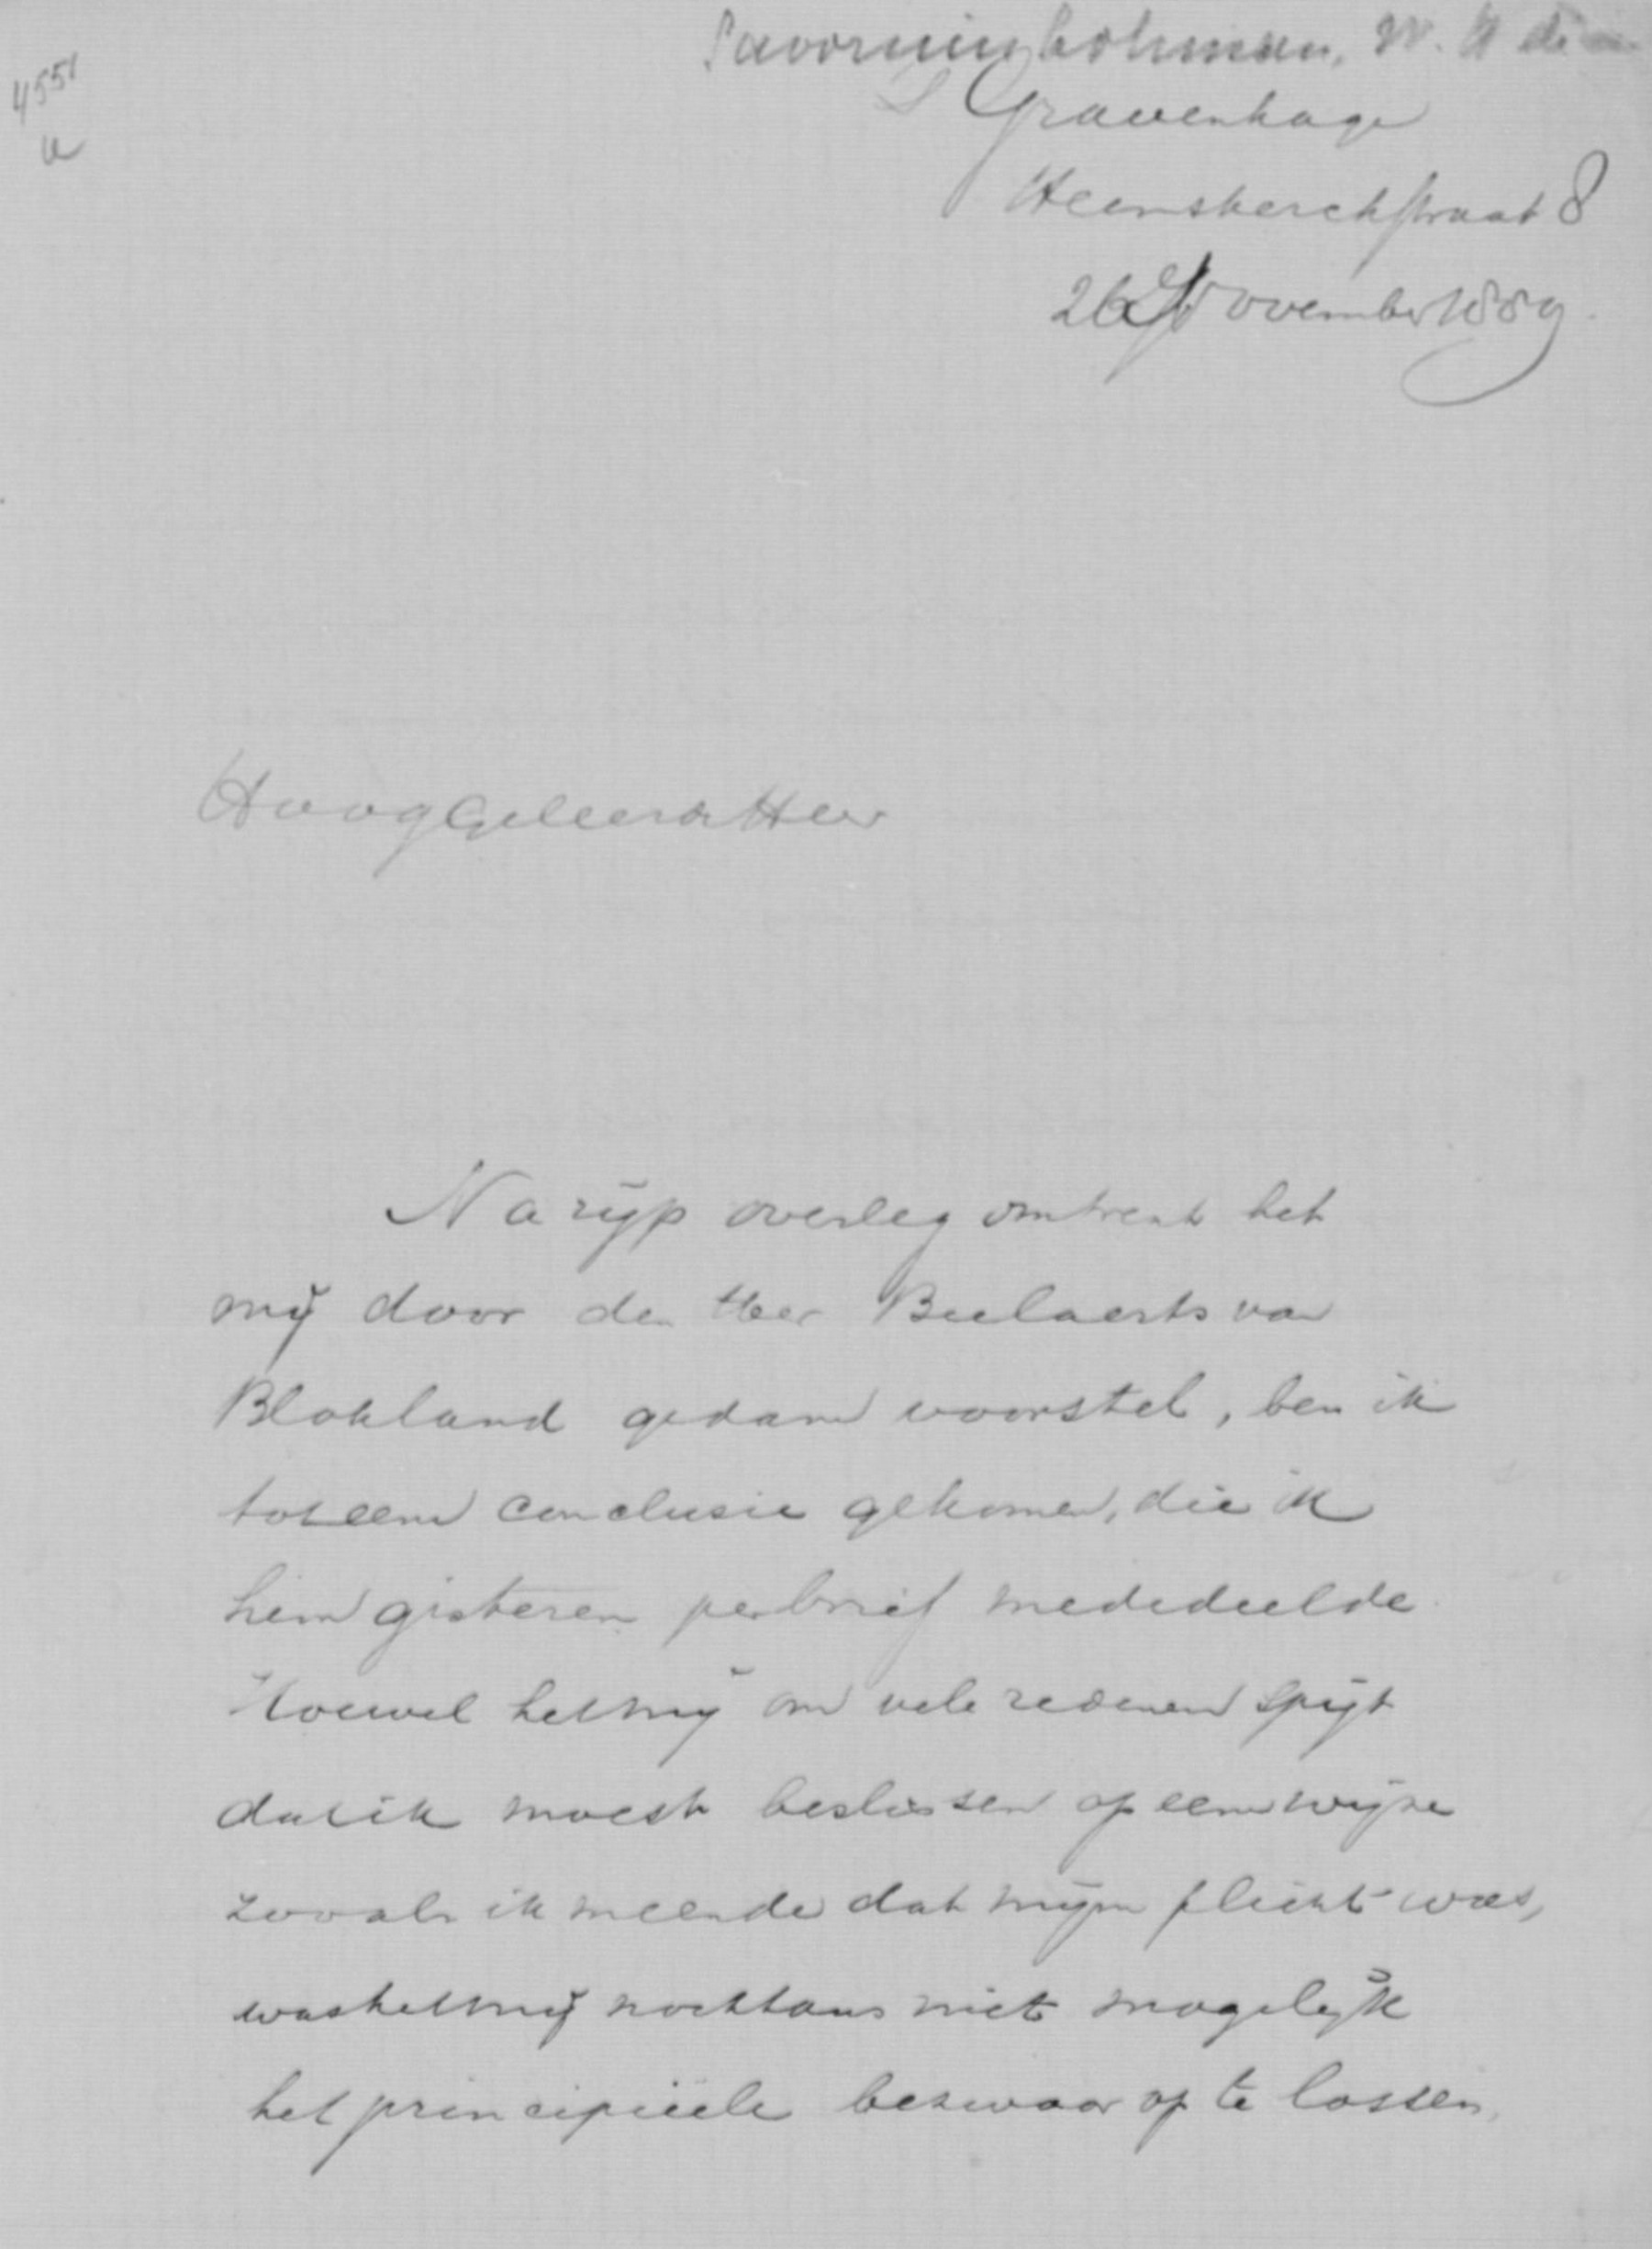 Savornin Lohman, W. H de
4551
S Gravenhage
Heemskerckstraat 8
26 November 1889.
HoogGeleerde Heer
Na rijp overleg omtrent het
mij door den Heer Beelaerts van
Blokland gedane voorstel, ben ik
tot eene conclusie gekomen, die ik
hem gisteren per brief mededeelde.
Hoewel het mij om vele redenen spijt
dat ik moest beslissen op eene wijze
zooals ik meende dat mijn plicht was,
was het mij nochtans niet mogelijk
het principieele bezwaar op te lossen,